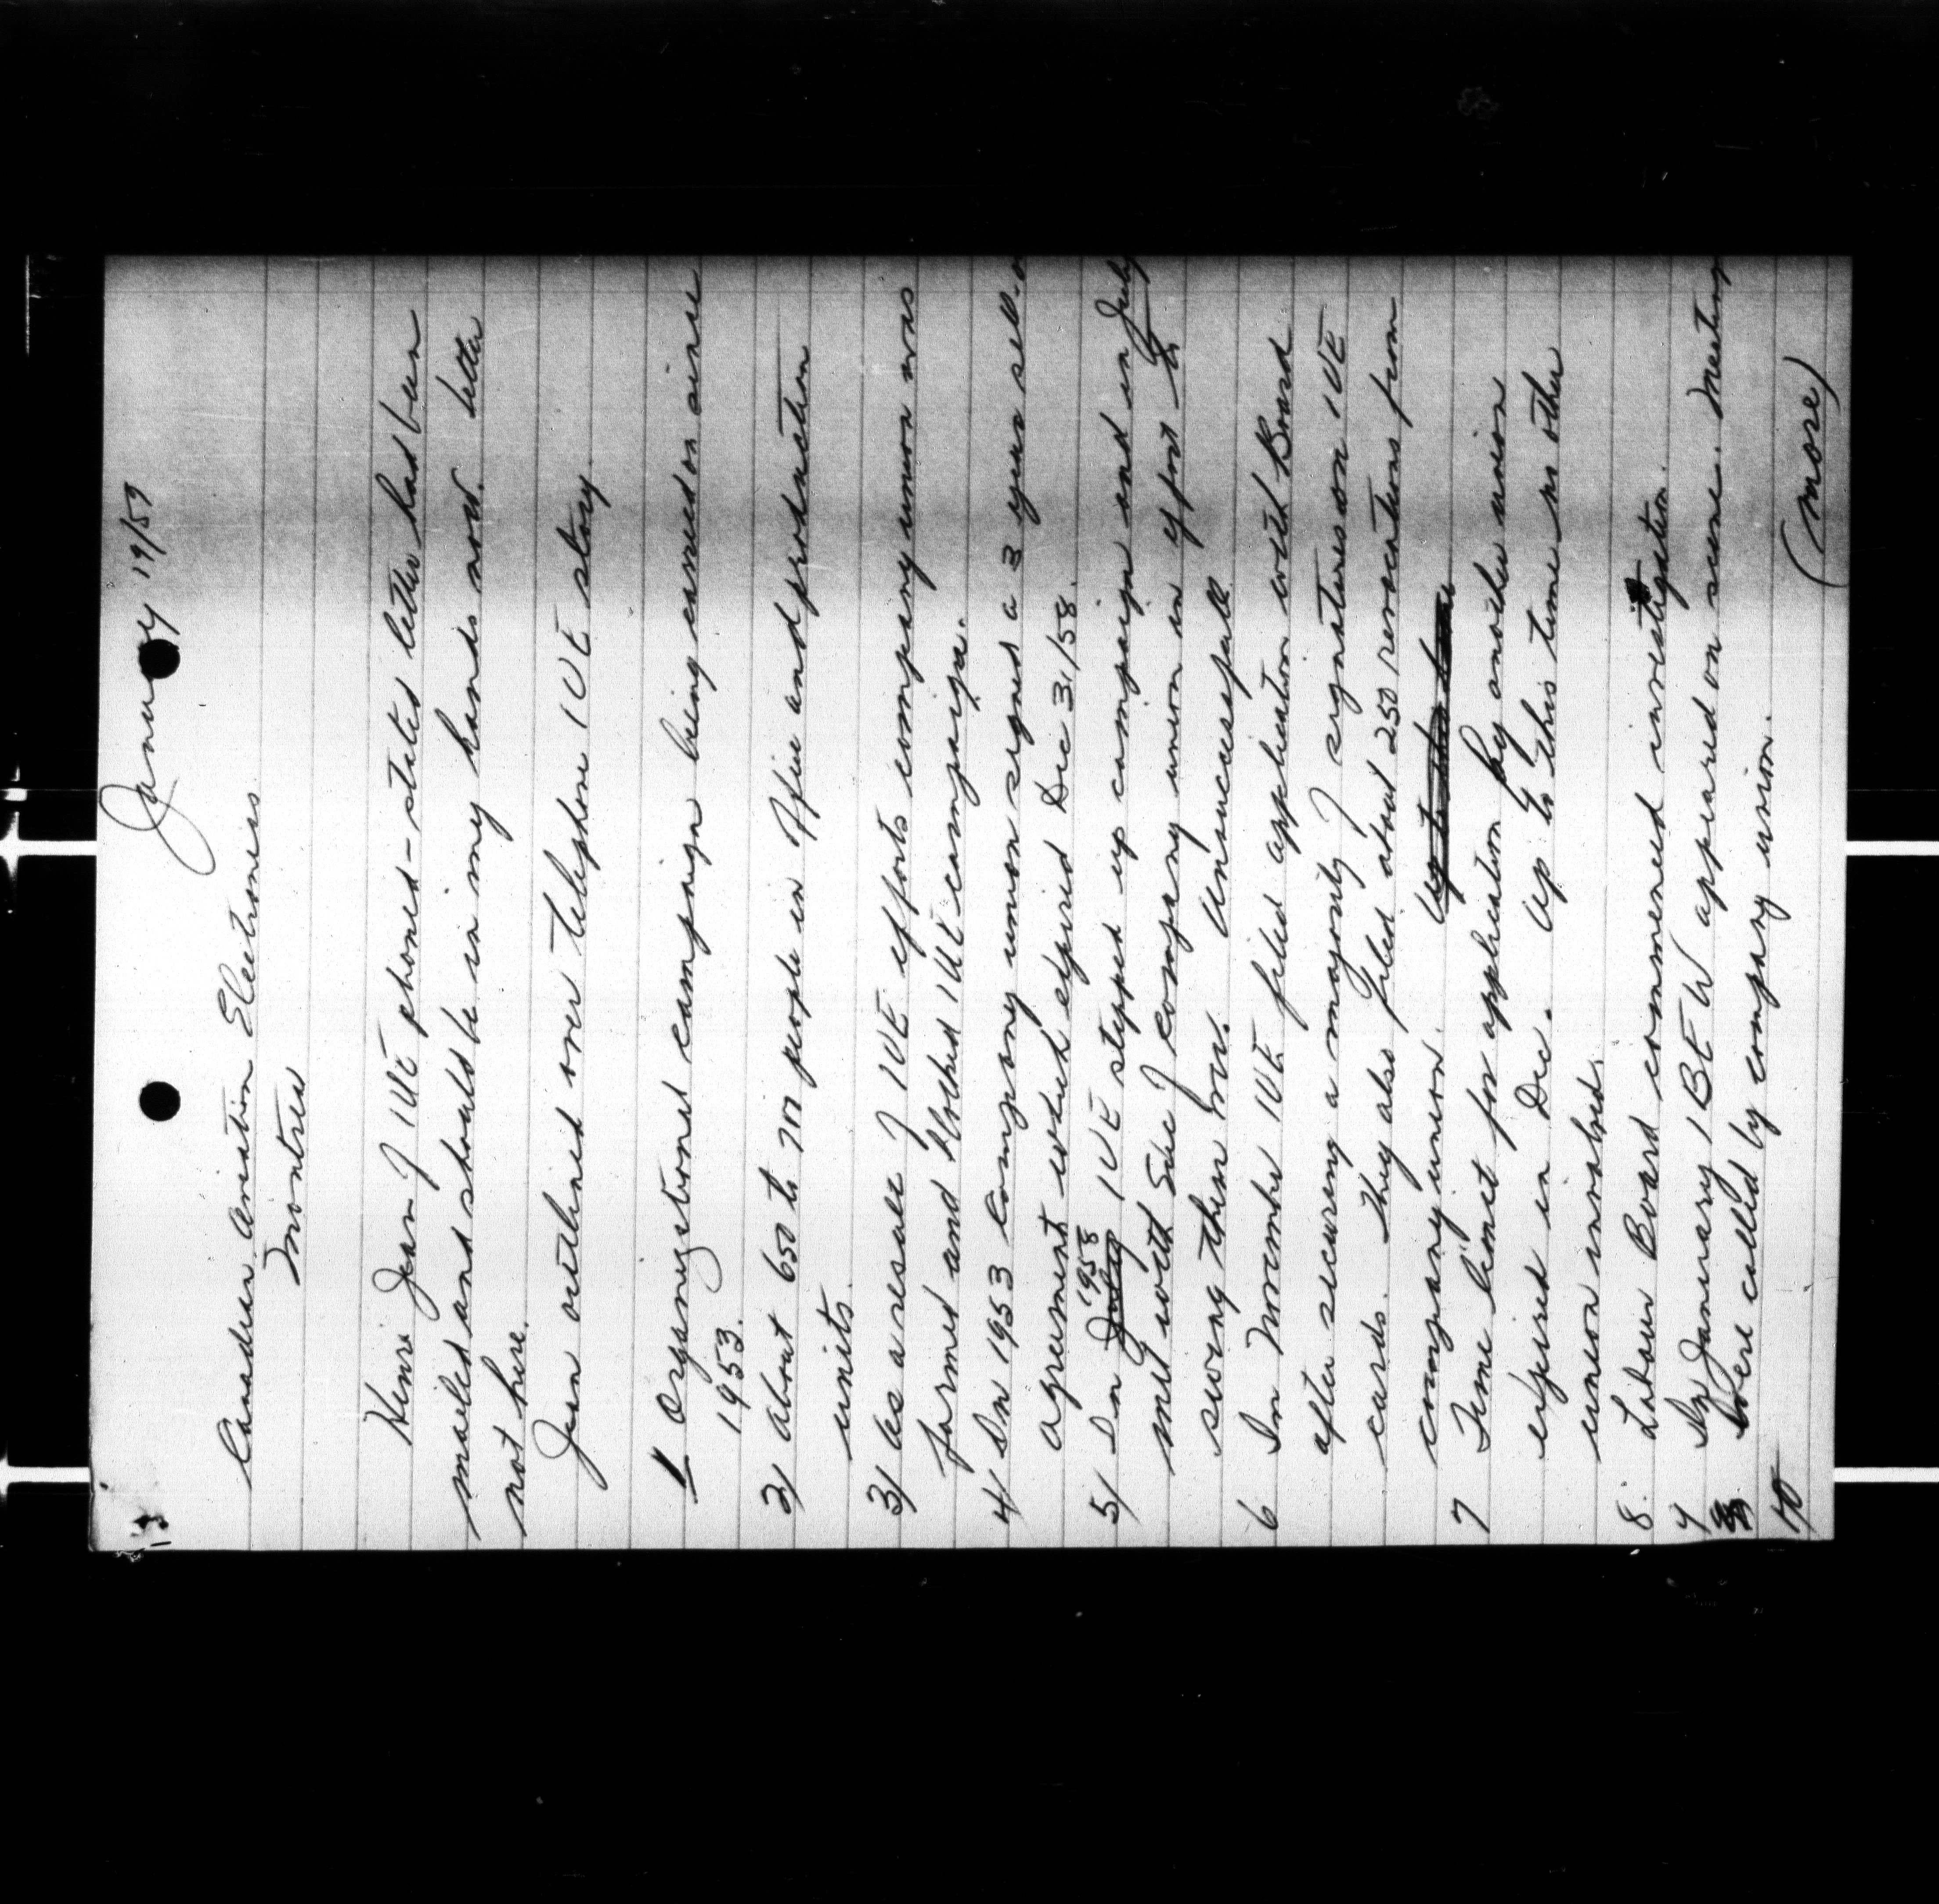 January 19/59
Canadian Aviation Electronics
Montreal
Henri Jean of IUE phoned - stated letter had been
mailed and should be in my hands now. Letter
not here.
Jean outlined over telephone IUE story.
1 Organizational campaign being carried on since
1953.
2) About 650 to 700 people in office and production
units.
3) As a result of IUE efforts company union was
formed and blocked IUE campaign.
4) In 1953 Company union signed a 3 year sell-o
agreement which expired Dec 31/58.
5) In July 1958 IUE stepped up campaign and in July
met with Sec of company union in effort to
swing them over. Unsuccessful.
6 In November IUE filed application with Board
after securing a majority of signatures on IUE
cards. They also filed about 250 revocations from
company union. Up to this time
7 Time limit for application by another union
expired in Dec. Up to this time no other
union involved.
8. Labour Board commenced investigation.
9 In January IBEW appeared on scene. Meeting
were called by company union.
10
(more)